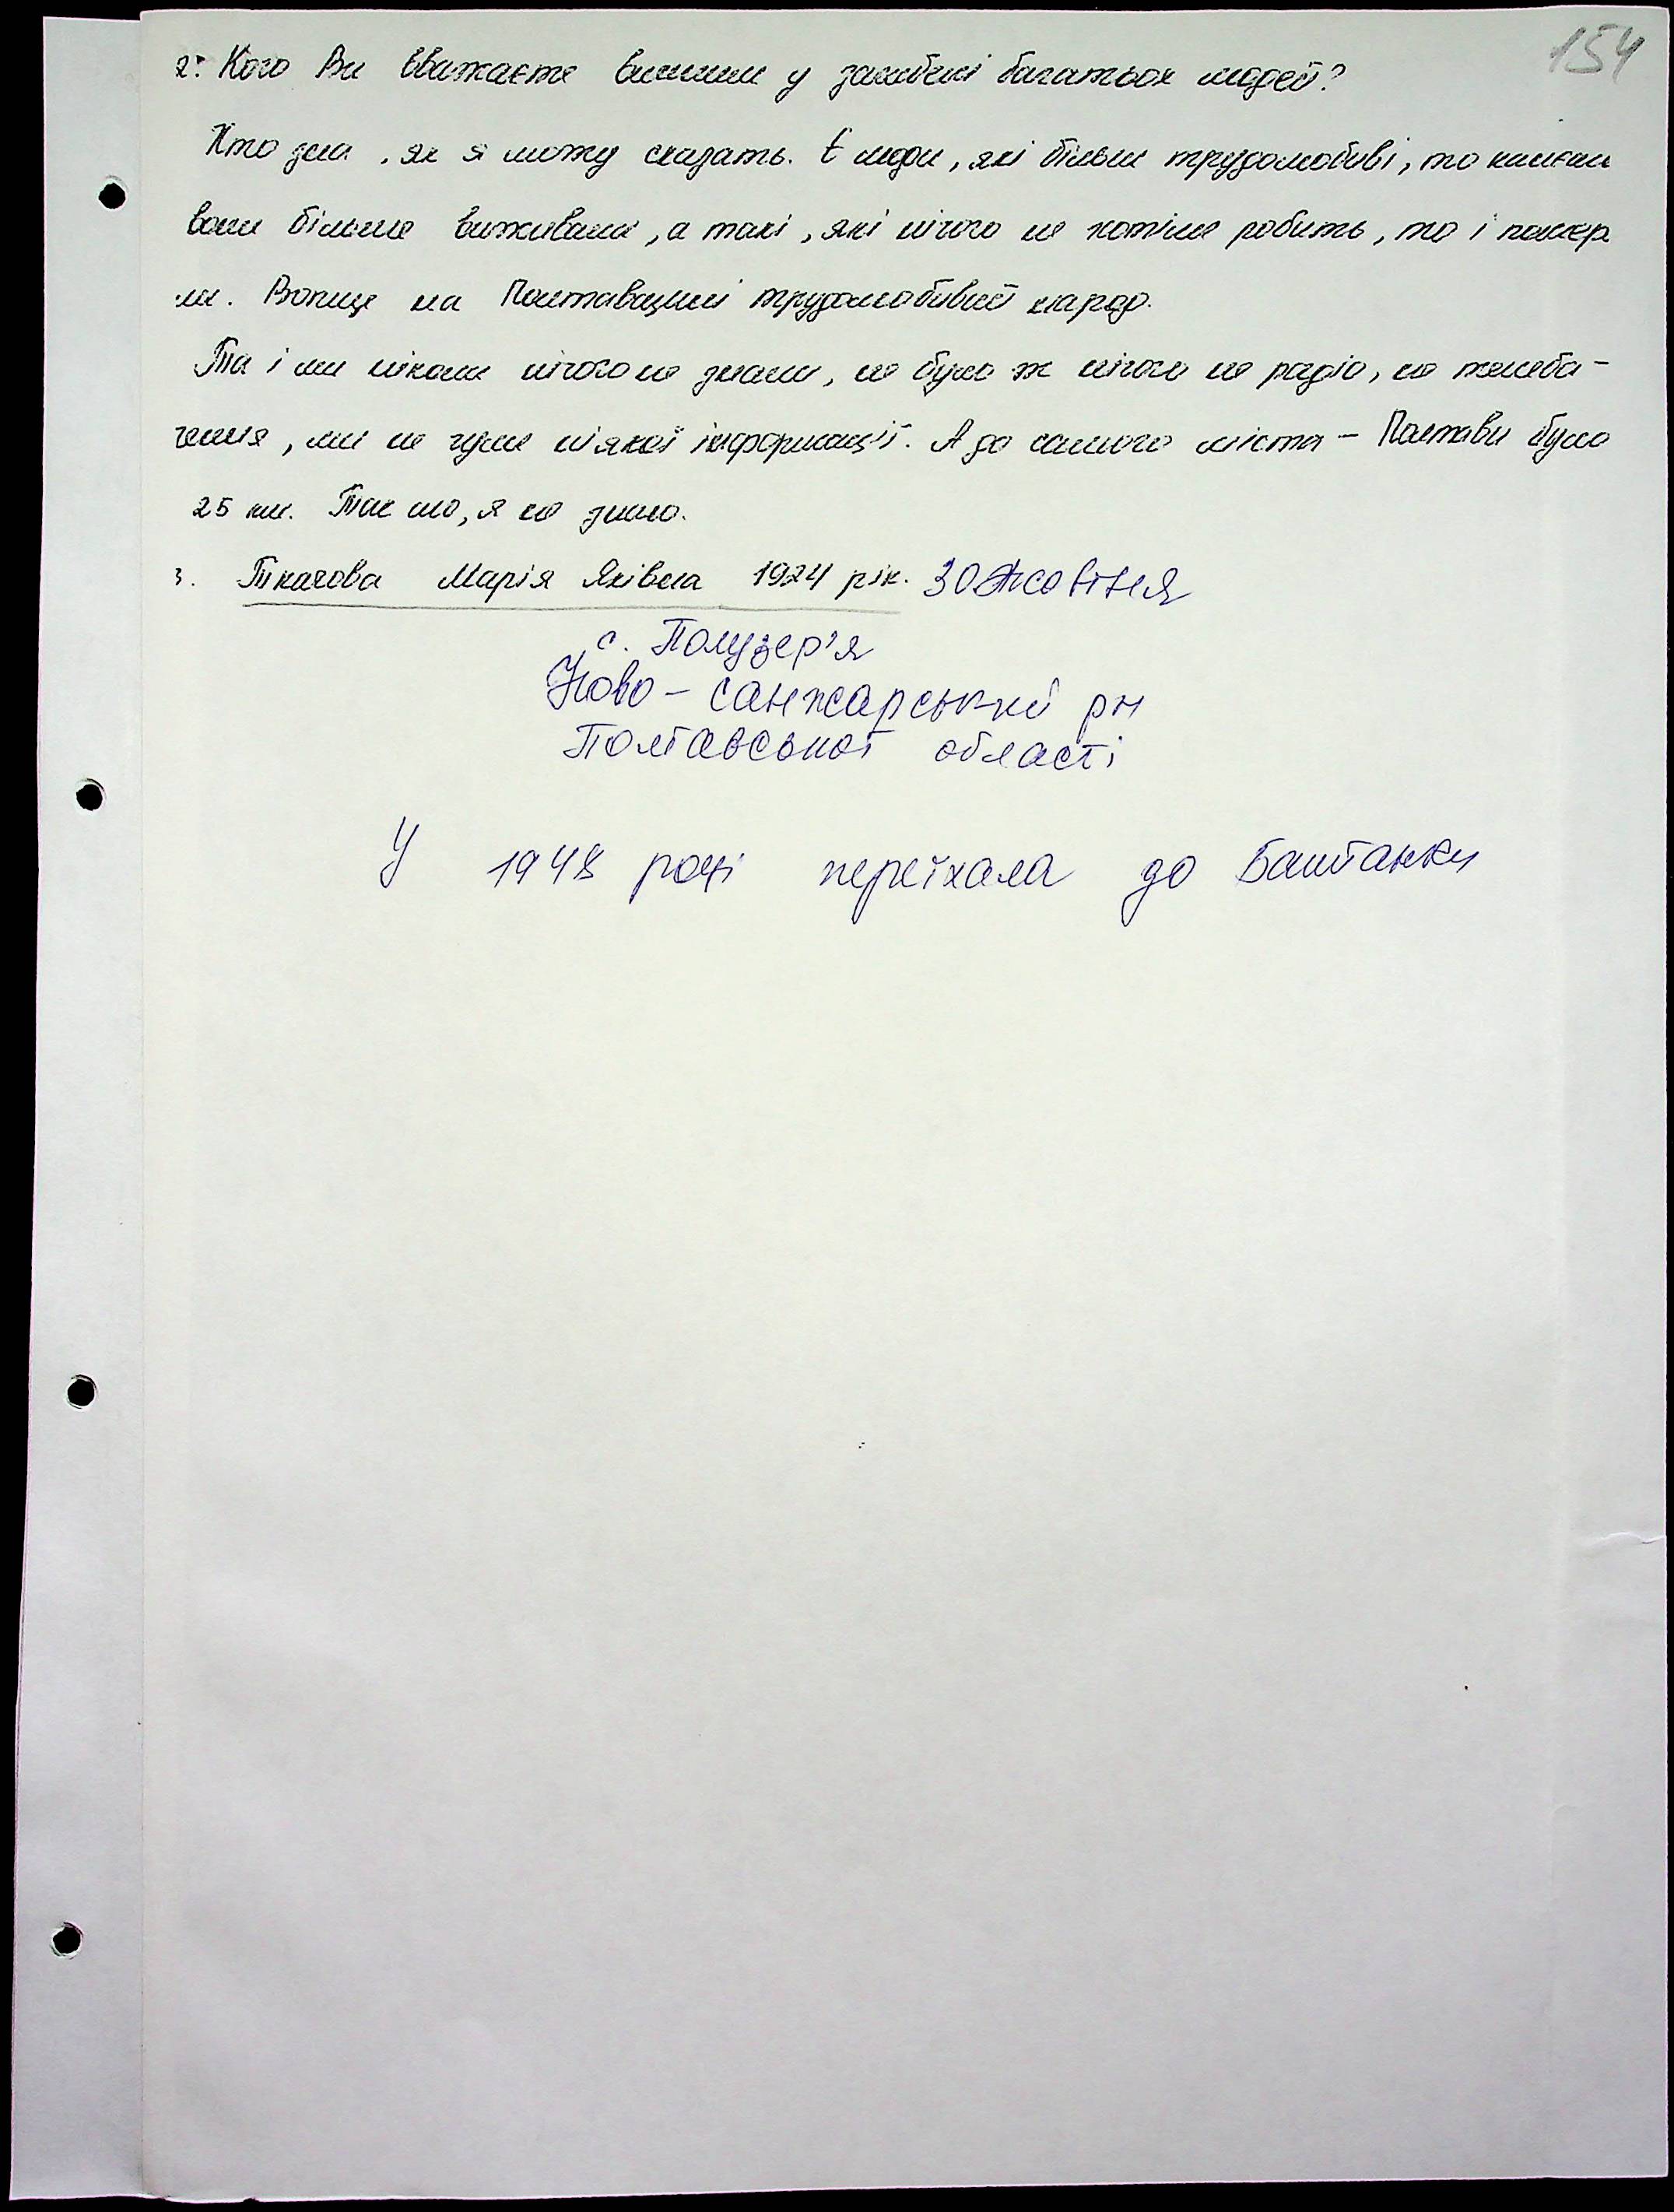 154
2. Кого Ви вважаєте винними у загибелі багатьох людей?
Хто зна, як я можу сказать. Є люди, які більш трудолюбиві, то
вони більше виживали, а такі, які нічого не хотіли робить, то і помер
ли. Вопще на Полтавщині трудолюбивий народ.
Та і ми ніколи нічого не знали, не було ж нічого не радіо, не телеба-
чення, ми не чули ніякої інформації. А до самого міста - Полтави було
25 км. Так шо, я не знаю.
3. Ткачова Марія Яківна 1924 рік. 30 жовтня
с. Полузер'я
Ново-санжарський рн
Полтавської області
У 1948 році переїхала до Баштанки